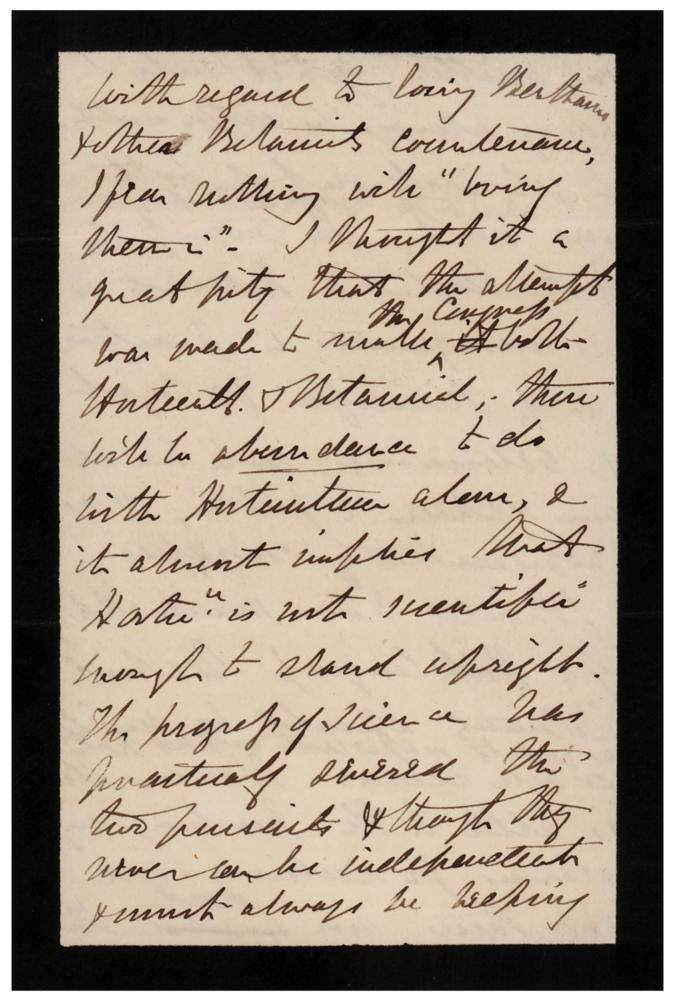 with regard to losing Benthams
& other Botanists countenance,
I fear nothing will "bring
them in". I thought it a
great pity that the attempt
was made to make the Congress it both
Horticult. & Botanical, there
will be abundance to do
with Horticulture alone, &
it almost implies that
Hortic.re is not scientific
enough to stand upright.
The progress of science has
practically severed the
two pursuits & though they
never can be independent
& must always be helping